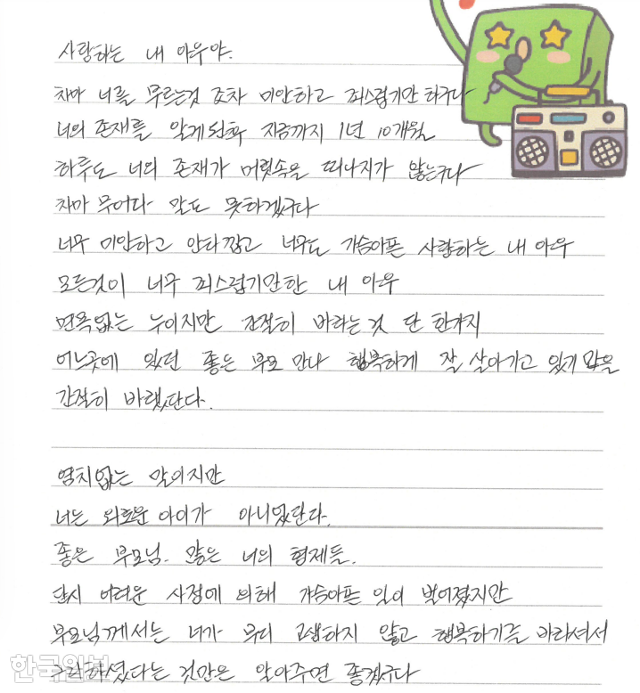 사랑하는 내 아우야.
차마 너를 부르는것 조차 미안하고 죄스럽기만 하구나
너의 존재를 알게된후 지금까지 1년 10개월
하루도 너의 존재가 머릿속을 떠나지가 않는구나
차마 무어라 말도 못하겠구나
너무 미안하고 안타깝고 너무도 가슴아픈 사랑하는 내 아우
모든것이 너무 죄스럽기만한 내 아우
면목없는 누이지만 간절히 바라는 것 단 한가지
어느곳에 있던 좋은 부모 만나 행복하게 잘 살아가고 있기 만을
간절히 바랬단다.
염치없는 말이지만
너는 외로운 아이가 아니었단다.
좋은 부모님. 많은 너의 형제들.
당시 어려운 사정에 의해 가슴아픈 일이 벌어졌지만
부모님께서는 너가 부디 고생하지 않고 행복하기를 바라셔서
그리하셨다는 것만은 알아주면 좋겠구나
한국일보